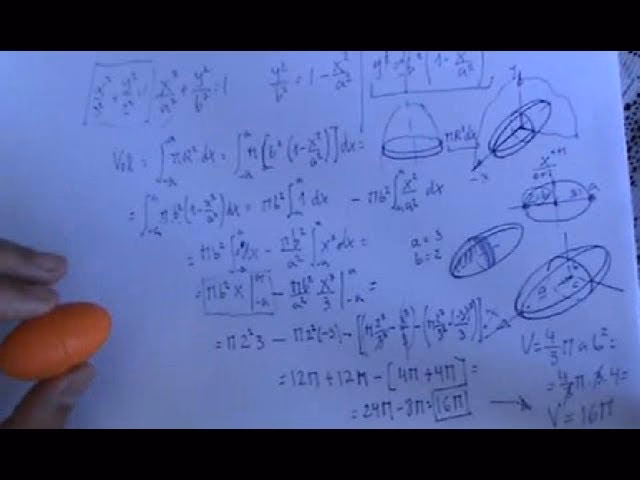 x²/3² + y²/2² = 1   x²/a² + y²/b² = 1   y²/b² = 1 - x²/a²   y² = b² (1 - x²/a²)
Vol = ∫₋ₐᵃ πR² dx = ∫₋ₐᵃ π [b² (1 - x²/a²)] dx =   πR²dx
= ∫₋ₐᵃ πb² (1 - x²/a²) dx = πb² ∫₋ₐᵃ 1 dx - πb² ∫₋ₐᵃ x²/a² dx
= πb² ∫₋ₐᵃ dx - πb²/a² ∫₋ₐᵃ x² dx =   a = 3
b = 2
= πb² x |₋ₐᵃ - πb²/a² x³/3 |₋ₐᵃ =
= π2²3 - π2²(-3) -
= 12π + 12π - [4π + 4π] =
= 24π - 8π = 16π
V = 4/3 π a b² =
= 4/3 π · 3 · 4 =
V = 16π